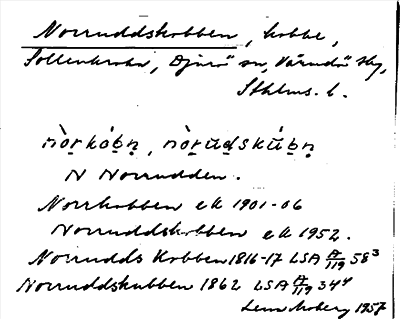 Norruddskobben, kobbe,
Sollenkroka, Djurö sn, Värmdö skg,
Sthlms. l.
nòṛkȯ́bṇ, nòṛuḍskúbṇ
N Norrudden.
Norrkobben ek 1901-06
Norruddskobben ek 1952.
Norrudds Kobben 1816-17 LSA A/119 58³
Norruddskubben 1862 LSA A/119 34⁴
Lena Moberg 1957